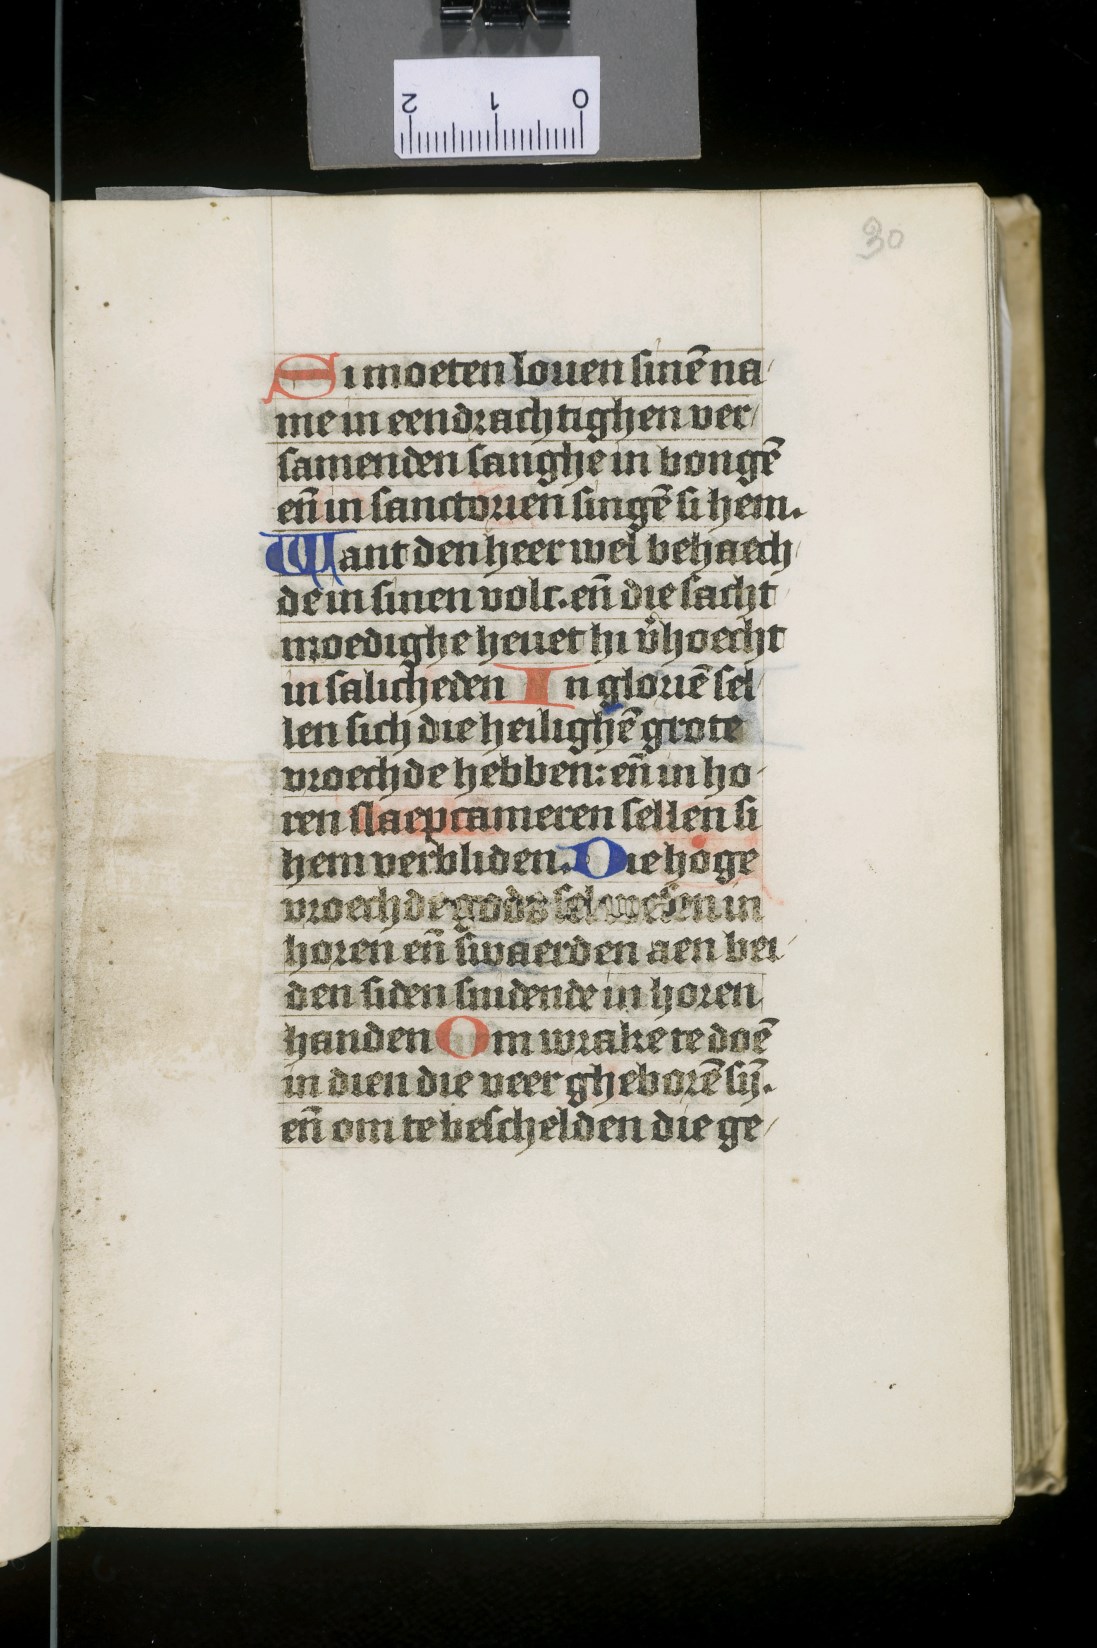 2 1 0
30
Si moeten louen sinē na
me in eendrachtighen ver
samenden sanghe in bongē
eñ in sanctorien singē si hem.
Want den heer wel behaech
de in sinen volc. eñ die sacht
moedighe heuet hi v̄hoecht
in salicheden In gloriē sel
len sich die heilighē grote
vroechde hebben: eñ in ho
ren slaepcameren sellen si
hem verbliden. Die hoge
vroechde gods sel wesen in
horen eñ swaerden aen bei
den siden snidende in horen
handen Om wrake te doē
in dien die veer gheborē sij̄.
eñ om te beschelden die ge